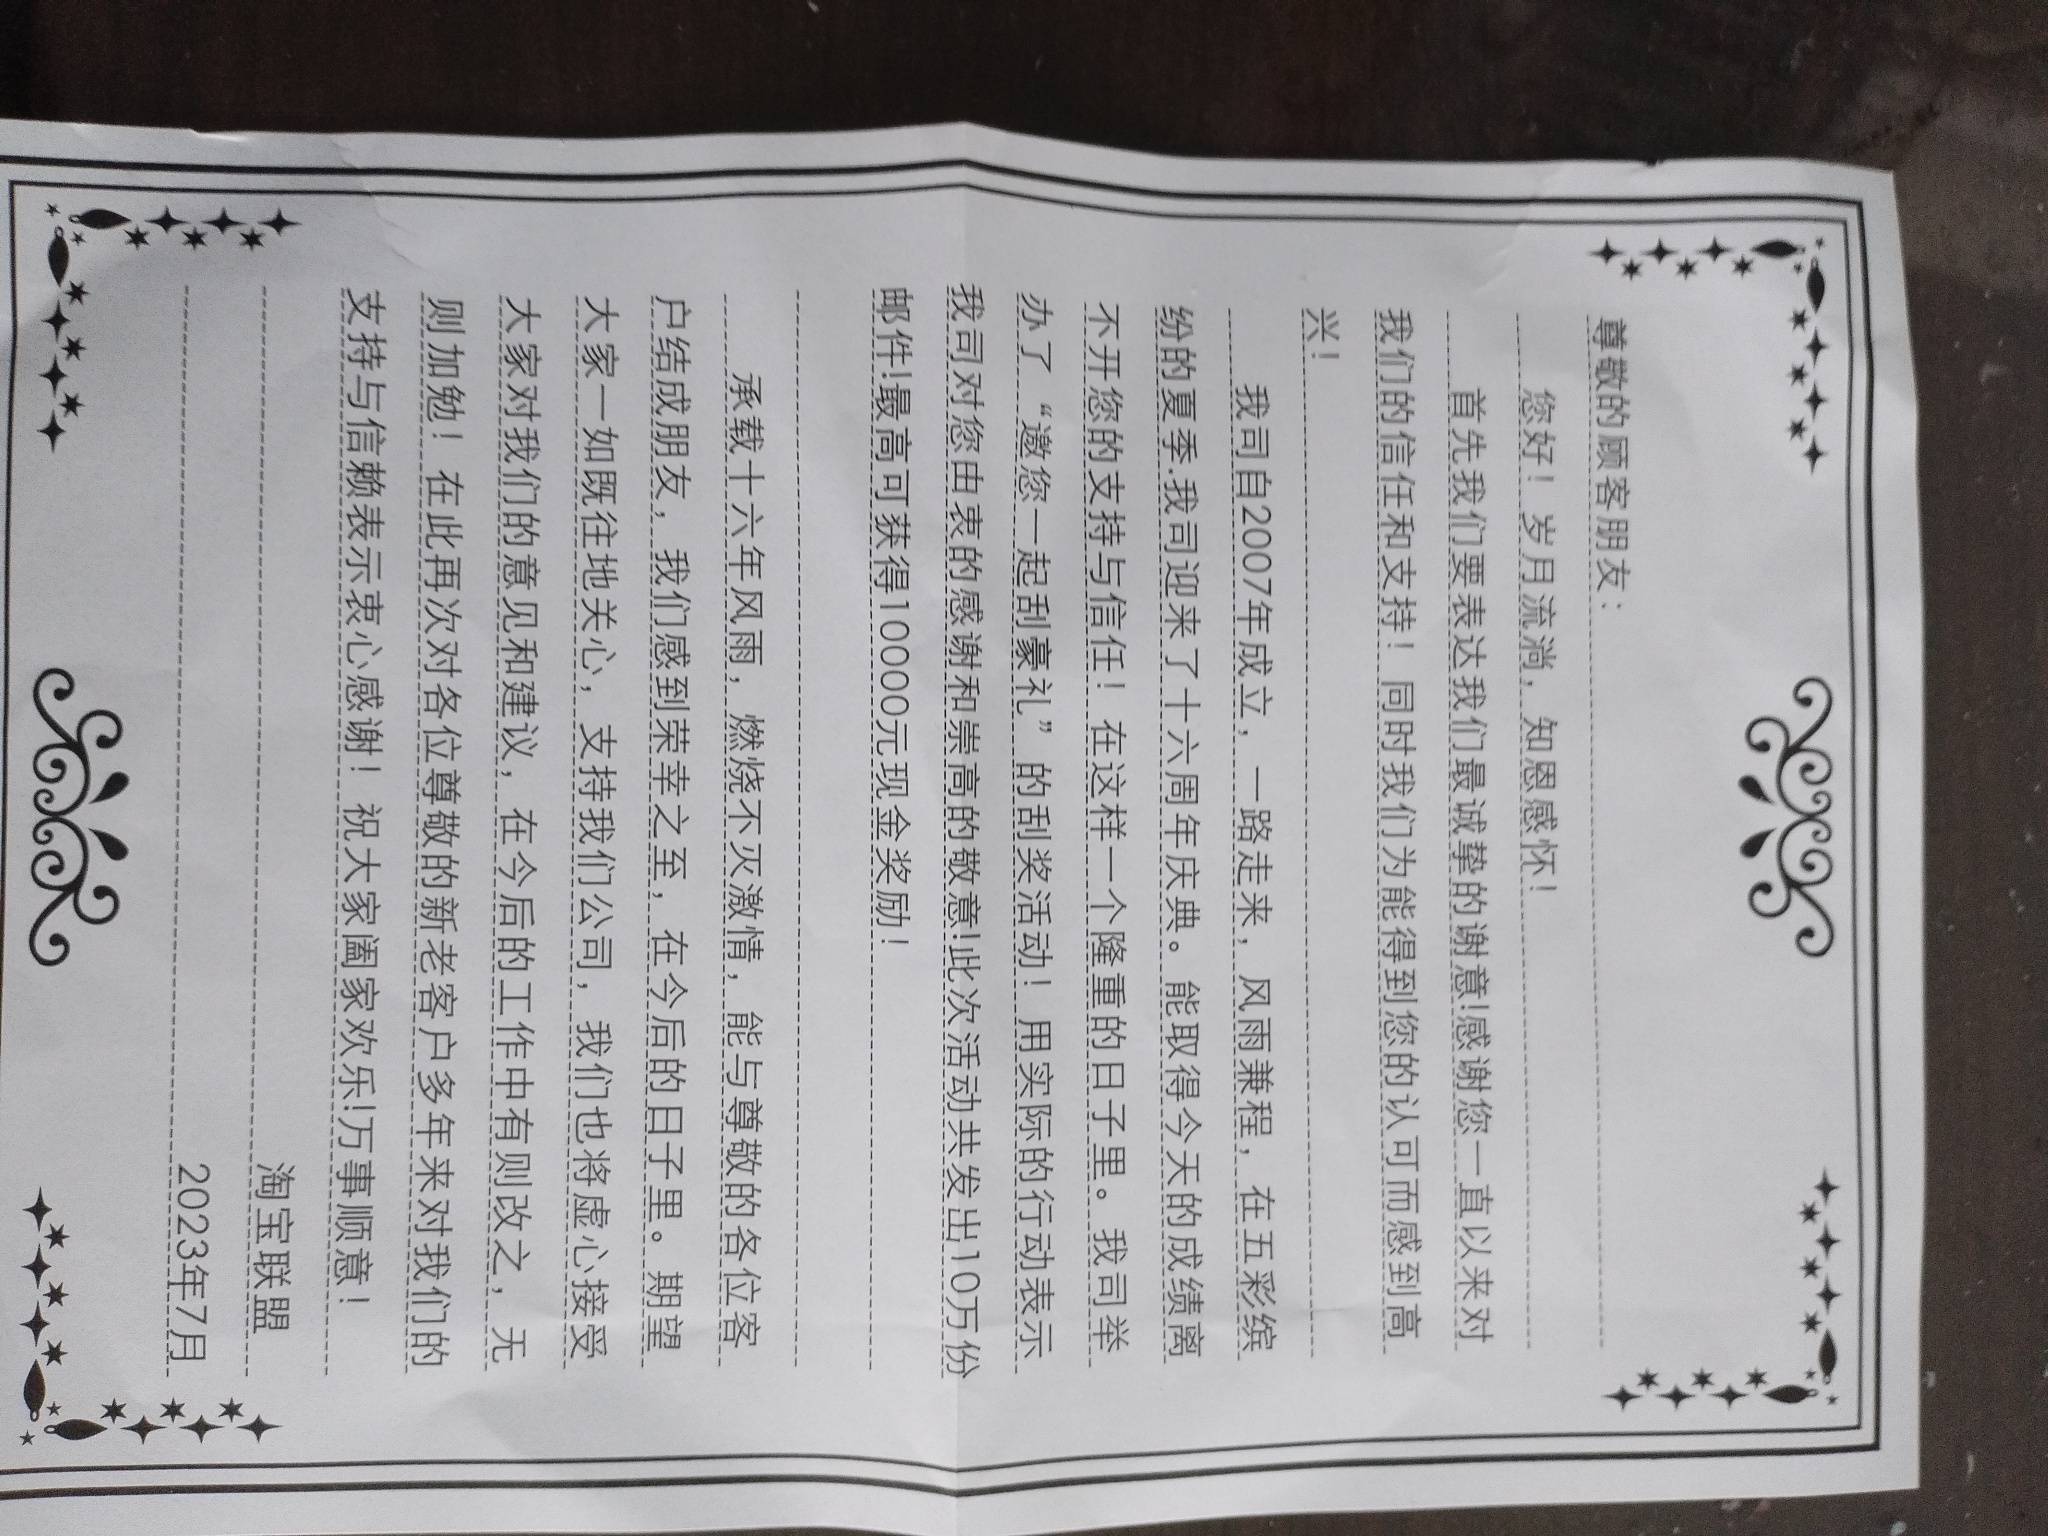 尊敬的顾客朋友：
您好！岁月流淌，知恩感怀！
首先我们要表达我们最诚挚的谢意!感谢您一直以来对
我们的信任和支持！同时我们为能得到您的认可而感到高
兴！
我司自2007年成立，一路走来，风雨兼程，在五彩缤
纷的夏季.我司迎来了十六周年庆典。能取得今天的成绩离
不开您的支持与信任！在这样一个隆重的日子里。我司举
办了“邀您一起刮豪礼”的刮奖活动！用实际的行动表示
我司对您由衷的感谢和崇高的敬意!此次活动共发出10万份
邮件!最高可获得10000元现金奖励！
承载十六年风雨，燃烧不灭激情，能与尊敬的各位客
户结成朋友，我们感到荣幸之至，在今后的日子里。期望
大家一如既往地关心，支持我们公司，我们也将虚心接受
大家对我们的意见和建议，在今后的工作中有则改之，无
则加勉！在此再次对各位尊敬的新老客户多年来对我们的
支持与信赖表示衷心感谢！祝大家阖家欢乐!万事顺意！
淘宝联盟
2023年7月